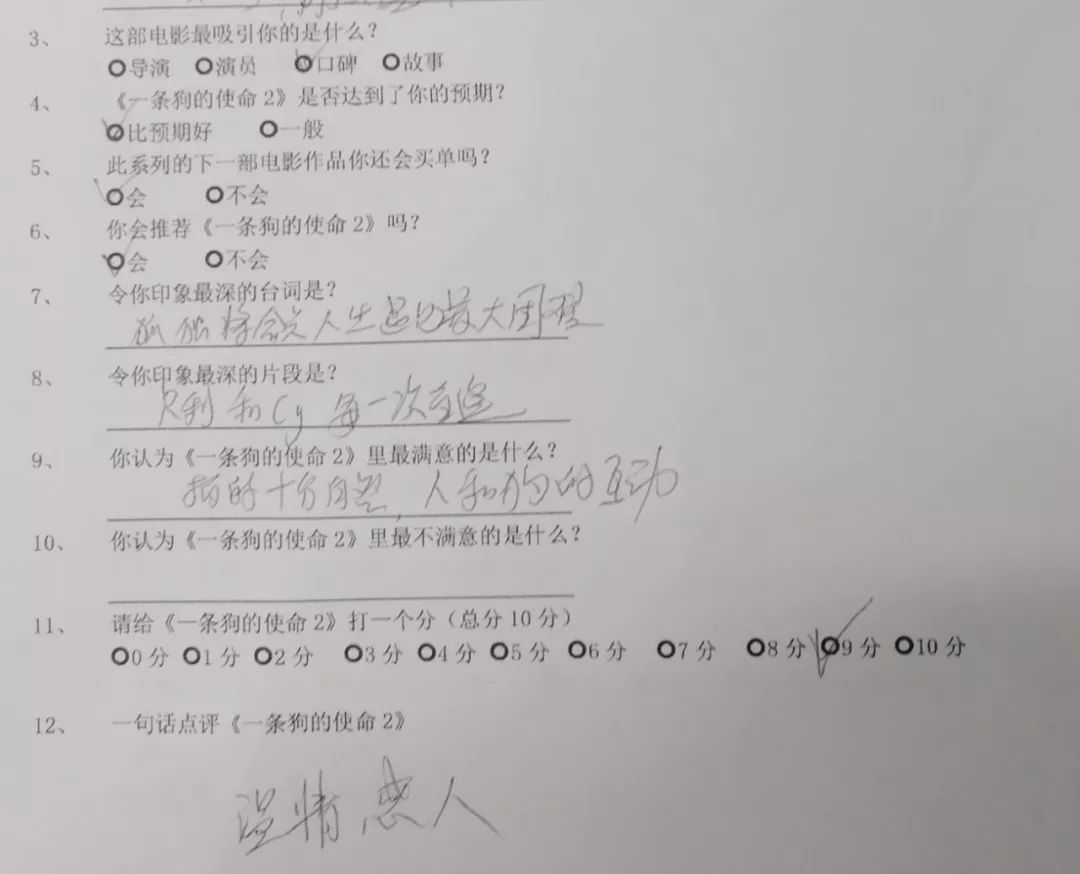 3、 这部电影最吸引你的是什么？
导演 演员 口碑 故事
4、 《一条狗的使命 2》是否达到了你的预期？
比预期好 一般
5、 此系列的下一部电影作品你还会买单吗？
会 不会
6、 你会推荐《一条狗的使命 2》吗？
会 不会
7、 令你印象最深的台词是？
孤独 人生 最大困
8、 令你印象最深的片段是？
贝利和Cy每一次
9、 你认为《一条狗的使命 2》里最满意的是什么？
拍的十分自然，人和狗的互动
10、 你认为《一条狗的使命 2》里最不满意的是什么？
11、 请给《一条狗的使命 2》打一个分（总分 10 分）
0 分 1 分 2 分 3 分 4 分 5 分 6 分 7 分 8 分 9 分 10 分
12、 一句话点评《一条狗的使命 2》
温情感人